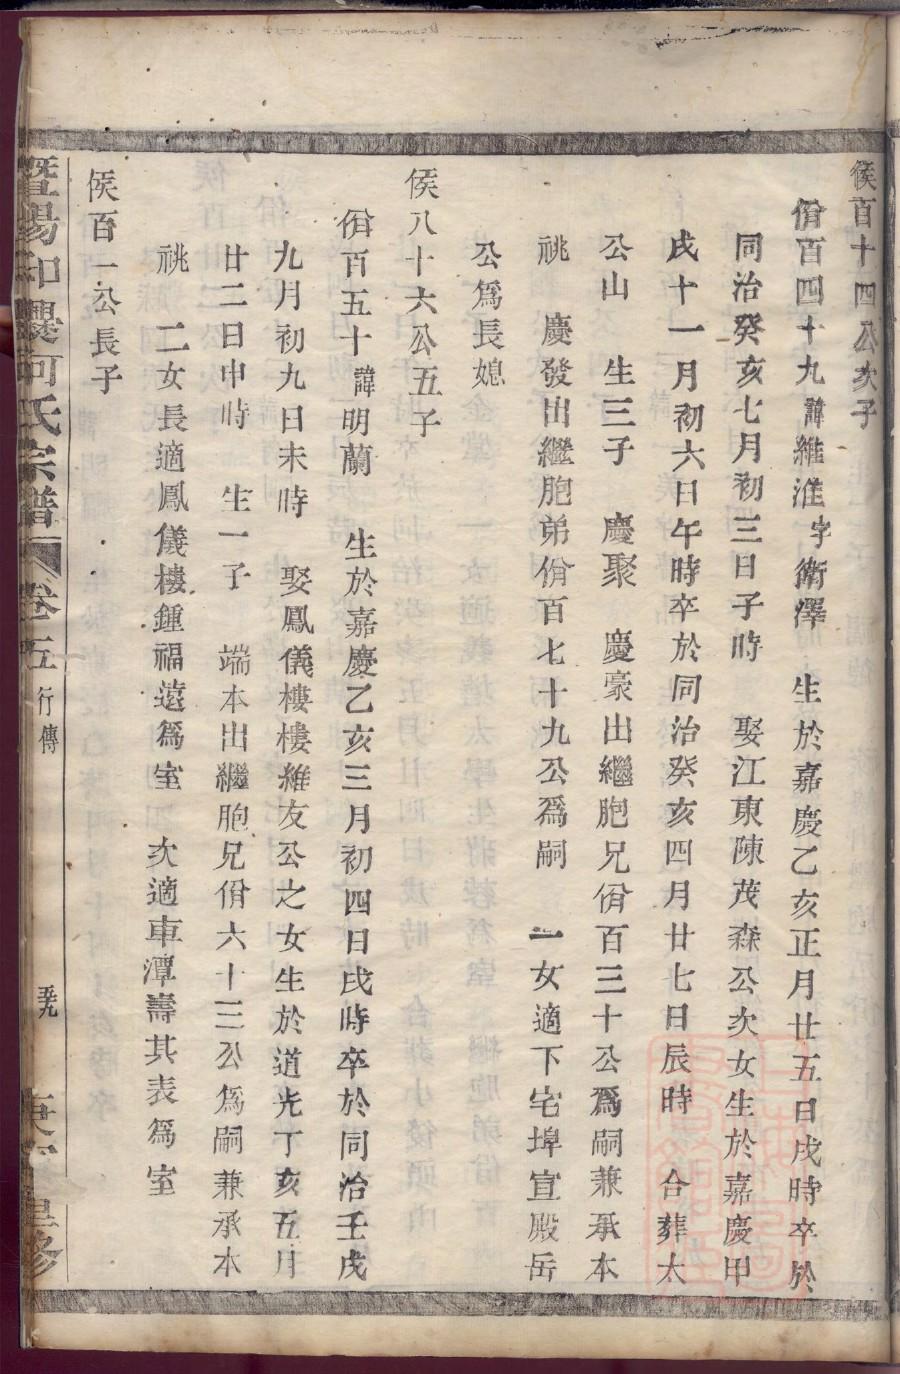 侯百十四公次子
佾百四十九諱維淮字衛澤　生於嘉慶乙亥正月廿五日戌時卒於
同治癸亥七月初三日子時　娶江東陳茂森公次女生於嘉慶甲
戌十一月初六日午時卒於同治癸亥四月廿七日辰時　合葬太
公山　生三子　慶聚　慶豪出繼胞兄佾百三十公爲嗣兼承本
祧　慶發出繼胞弟佾百七十九公爲嗣　一女適下宅埠宣殿岳
公爲長媳
侯八十六公五子
佾百五十諱明蘭　生於嘉慶乙亥三月初四日戌時卒於同治壬戌
九月初九日未時　娶鳳儀樓樓維友公之女生於道光丁亥五月
廿二日申時　生一子　端本出繼胞兄佾六十三公爲嗣兼承本
祧　二女長適鳳儀樓鍾福遠爲室　次適車潭壽其表爲室
侯百一公長子
暨陽 氏宗譜 卷五 行傳